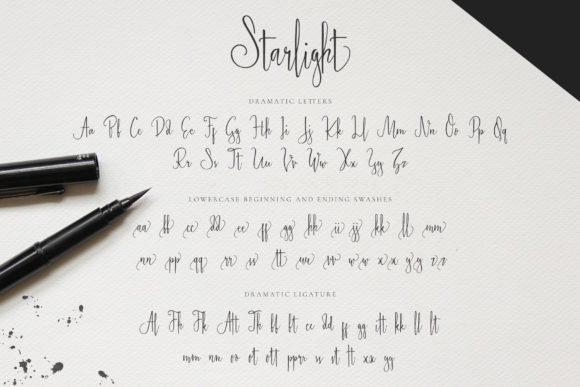 Starlight
DRAMATIC LETTERS
Aa Bb Cc Dd Ee Ff Gg Hh Ii Jj Kk Ll Mm Nn Oo Pp Qq
Rr Ss Tt Uu Vv Ww Xx Yy Zz
LOWERCASE BEGINNING AND ENDING SWASHES
aa bb cc dd ee ff gg hh ii jj kk ll mm
nn pp qq rr ss tt uu vv ww xx yy zz
DRAMATIC LIGATURE
Al Fh Fk Att Th bf bt cc dd ff gg itt kk ll lt
mm nn oo ot ott pprr ss st tt xx yy